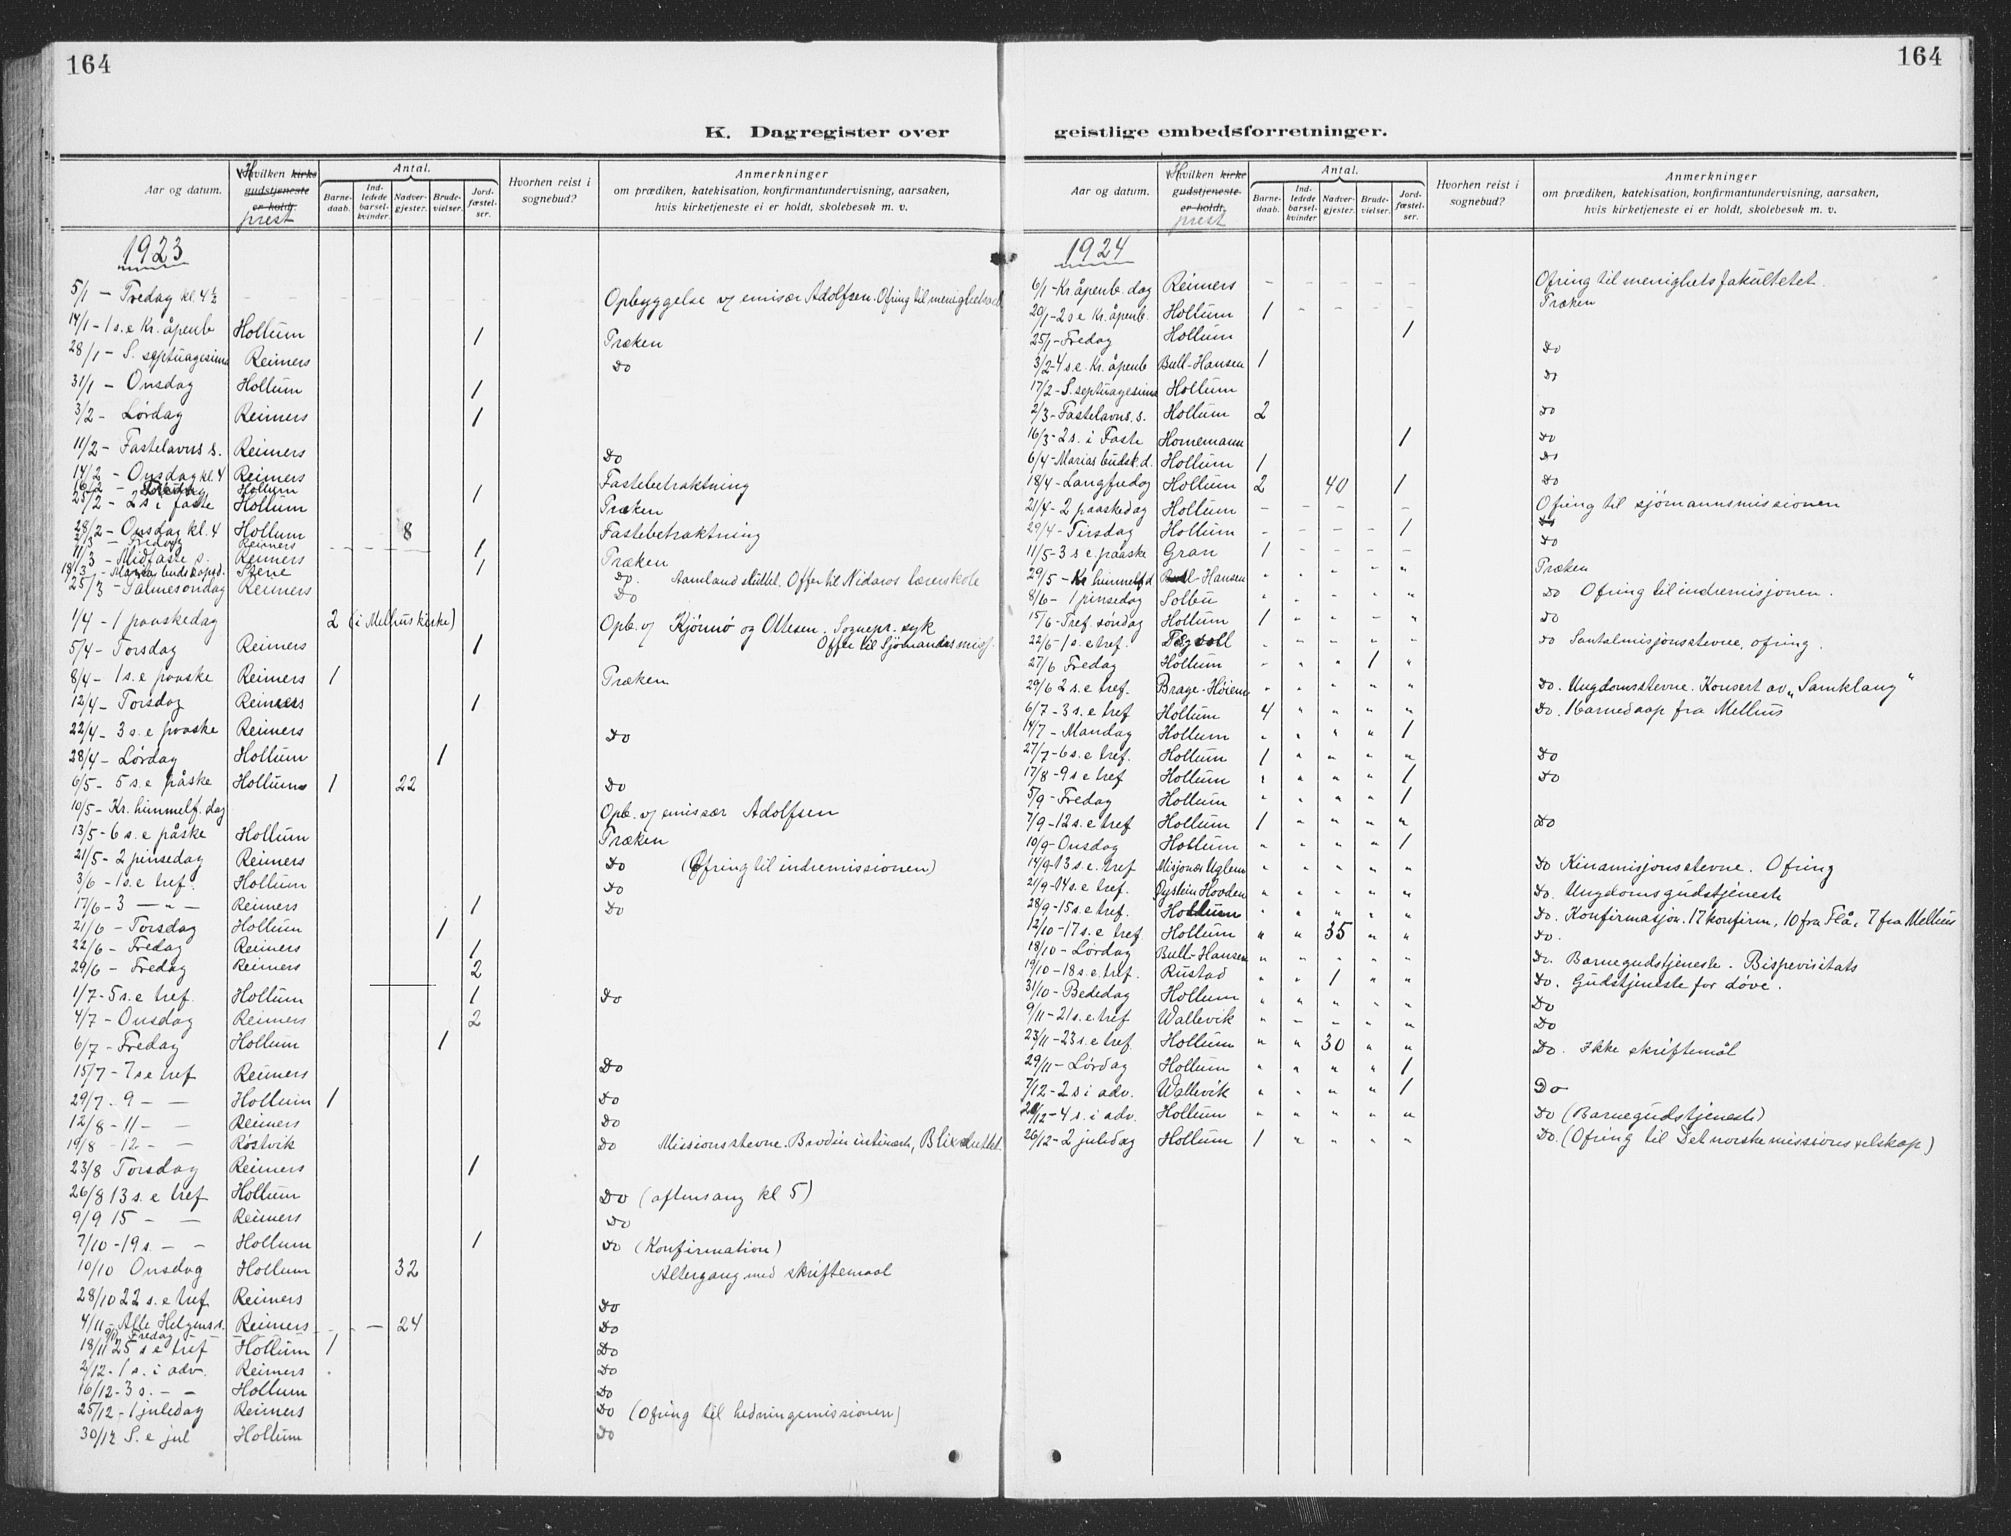 164
K. Dagregister over
Aar og datum.
Hvilken kirke gudstjeneste er holdt, prest
Antal.
Barnedaab.
Indledede barselkvinder.
Nadvergjester.
Brudevielser.
Jordfæstelser.
Hvorhen reist i sognebud?
Anmerkninger
om prædiken, katekisation, konfirmantundervisning, aarsaken,
hvis kirketjeneste ei er holdt, skolebesøk m. v.
1923
5/1 - Fredag kl. 4½ Opbyggelse v/ emisær Adolfsen. Ofring til menighets
14/1 - 1 s. e Kr. åpenb Hollum 1 Præken
28/1 - S. septuagesima Reimers Do
31/1 - Onsdag Hollum 1
3/2 - Lørdag Reimers 1
11/2 - Fastelavns s. Reimers Do
14/2 - Onsdag kl. 4 Reimers Fastebetraktning
16/2 - Fredag Hollum 1
25/2 - 2 s i faste Hollum Præken
28/2 - Onsdag kl. 4 Hollum 8 Fastebetraktning
Fredag Reimers 1
11/3 - Midfaste s. Reimers Præken
18/3 - Marias budskapsd. Stene 1 Do. Aamland sluttet. Offer til Nidaros lærerskole
25/3 - Palmesøndag Reimers Do
1/4 - 1 paaskedag 2 (i Melhus kirke) Opb. v/ Kjönnö og Ottesen. Sognepr. syk
Offer til Sjömandsmisj.
5/4 - Torsdag Reimers 1
8/4 - 1 s. e paaske Reimers 1 Præken
12/4 - Torsdag Reimers 1
22/4 - 3 s. e paaske Reimers Do
28/4 - Lørdag Hollum 1
6/5 - 5 s. e påske Hollum 1 22 Do
10/5 - Kr. himmelf. dag Opb. v/ emissær Adolfsen
13/5 - 6 s. e påske Hollum Præken
21/5 - 2 pinsedag Reimers Do (Ofring til indremissionen)
3/6 - 1 s. e tref. Hollum Do
17/6 - 3 — " — Reimers 1 Do
21/6 - Torsdag Hollum 1
22/6 - Fredag Reimers 1
29/6 - Fredag Reimers 2
1/7 - 5 s. e tref. Hollum 1 Do
4/7 - Onsdag Reimers 2
6/7 - Fredag Hollum 1
15/7 - 7 s e tref Reimers Do
29/7 - 9 — — Hollum 1 Do
12/8 - 11 - — Reimers Do
19/8 - 12 - — Röstvik Do Missionsstevne. Brodin intimerte, Blix sluttet.
23/8 Torsdag Reimers 1
26/8 13 s. e tref Hollum Do (aftensang kl 5)
9/9 15 - — Reimers Do
7/10 - 19 s. — - Hollum 1 Do (Konfirmation)
10/10 Onsdag Hollum 32 Altergang med skriftemaal
28/10 22 s. e tref Reimers Do
4/11 - Alle Helgens s. Reimers 24 Do
Fredag
18/11 25 s e tref Hollum 1 Do
2/12 - 1 s. i adv. Reimers Do
16/12 - 3 s. - - Hollum Do
25/12 - 1 juledag Reimers Do (Ofring til hedningemissionen)
30/12 S. e jul Hollum Do
164
geistlige embedsforretninger.
Aar og datum.
Hvilken kirke gudstjeneste er holdt, prest
Antal.
Barnedaab.
Indledede barselkvinder
Nadvergjester.
Brudevielser.
Jordfæstelser.
Hvorhen reist i sognebud?
Anmerkninger
om prædiken, katekisation, konfirmantundervisning, aarsaken,
hvis kirketjeneste ei er holdt, skolebesøk m. v.
1924
6/1 - Kr åpenb. dag Reimers Ofring til menighetsfakultetet.
20/1 - 2 s e Kr. åpenb. Hollum 1 Præken
25/1 - Fredag Hollum 1
3/2 - 4 s. e. Kr. åpenb Bull-Hansen 1 Do
17/2 - S. septuagesima Hollum Do
2/3 - Fastelavns. s. Hollum 2 Do
16/3 - 2 s. i Faste Hornemann 1 Do
6/4 - Marias budsk. d. Hollum 1 Do
18/4 - Langfredag Hollum 2 40 1 Do
21/4 - 2 paaskedag Hollum Ofring til sjömannsmissionen
29/4 - Tirsdag Hollum 1 Do
11/5 - 3 s e. paaske Gran 1 Do
29/5 - Kr himmelf. d Bull-Hansen Præken
8/6 - 1 pinsedag Solbu Do Ofring til indremisjonen.
15/6 - Tref. søndag Hollum 1 Do
22/6 - 1 s. e. tref. Do Santalmisjonsstevne, ofring.
27/6 Fredag Hollum 1
29/6 2 s. e tref. Brage-Höiem Do. Ungdomsstevne. Konsert av „Samklang"
6/7 - 3 s. e tref Hollum 4 Do. 1 barnedaap fra Melhus
14/7 - Mandag Hollum 1
27/7 - 6 s. e tref. Hollum 1 Do
17/8 - 9 s e tref Hollum 1 Do
5/9 - Fredag Hollum 1
7/9 - 12 s. e tref Hollum 1 Do
10/9 - Onsdag Hollum 1
14/9 - 13 s. e. tref Misjonær Uglem Do Kinamisjonsstevne. Ofring
21/9 - 14 s. e tref. Øystein Hovden Do. Ungdomsgudstjeneste
28/9 - 15 s. e tref. Hollum Do. Konfirmasjon. 17 konfirm, 10 fra Flå, 7 fra Melhus
12/10 - 17 s. e tref Hollum 35 Do.
18/10 - Lördag Bull-Hansen Do. Barnegudstjeneste. Bispevisitats
19/10 - 18 s. e. tref. Rustad 1 Do. Gudstjeneste for döve.
31/10 - Bededag Hollum Do
9/11 - 21 s. e. tref Wallevik Do
23/11 - 23 s. e tref. Hollum 30 Do. Ikke skriftemål
29/11 - Lördag Hollum 1
7/12 - 2 s i adv. Wallevik 1 Do
21/12 - 4 s. i adv. Hollum Do (Barnegudstjeneste)
26/12 - 2 juledag Hollum 1 Do. (Ofring til Det norske missionsselskap)